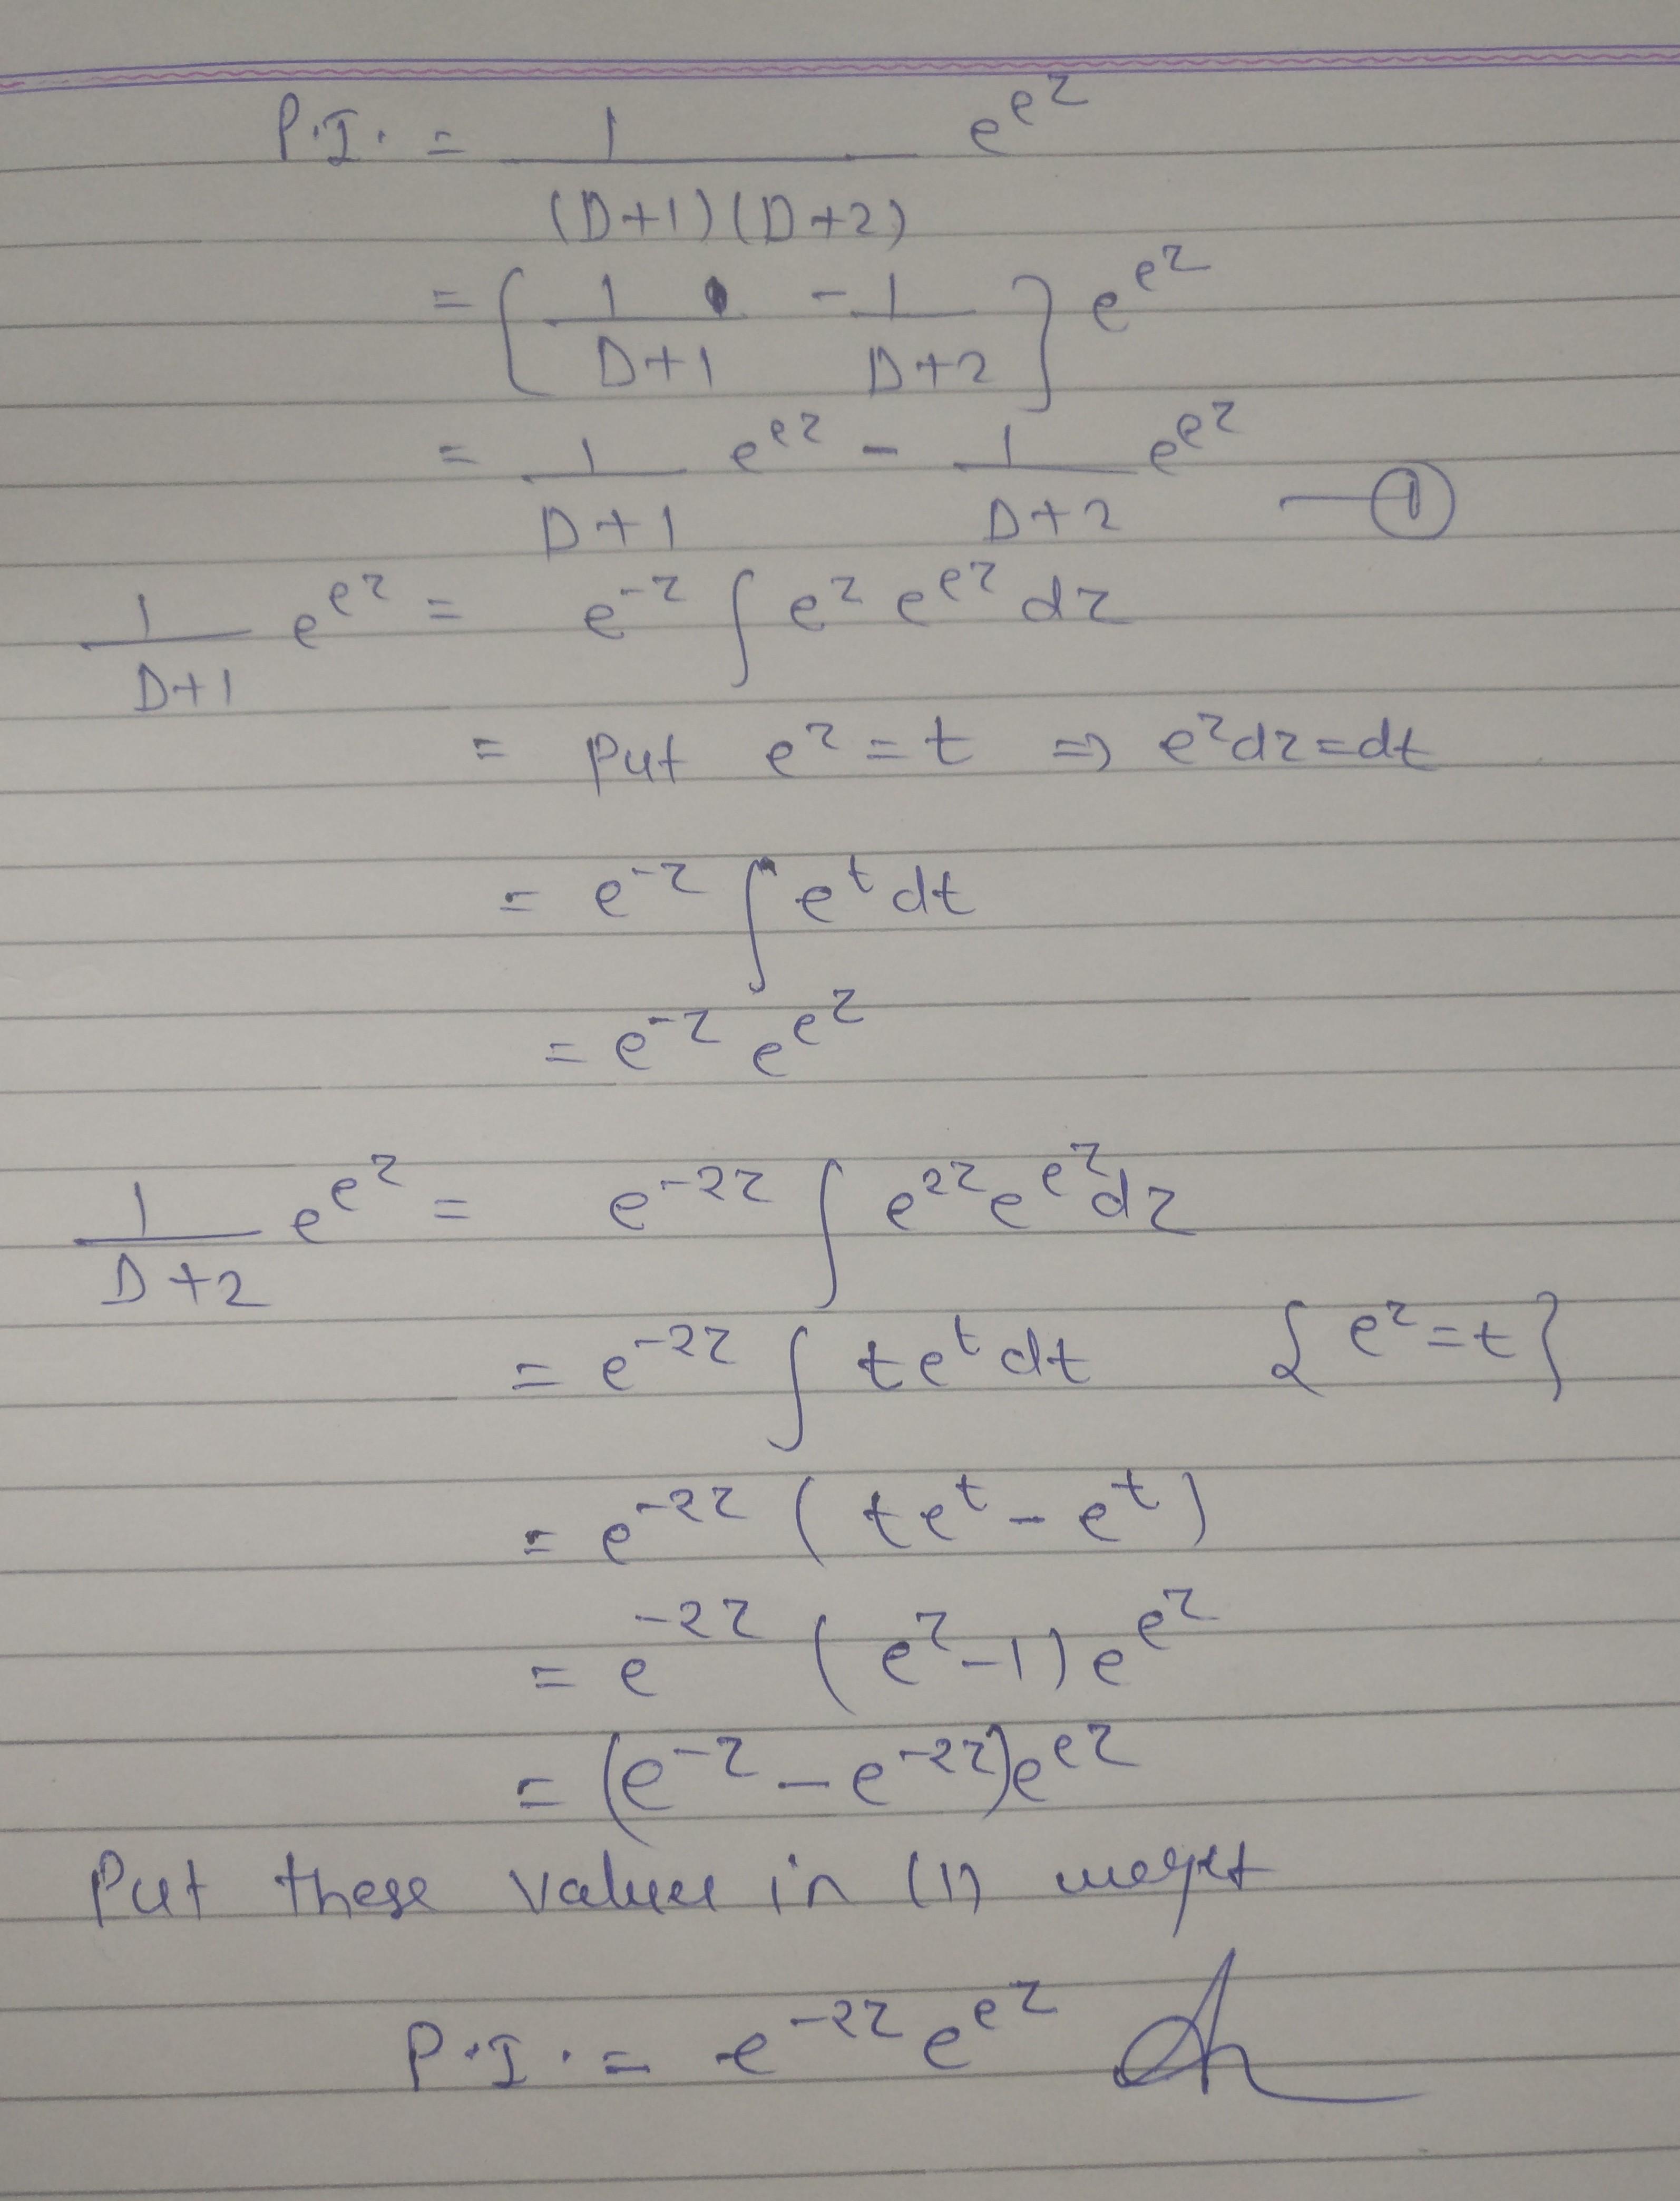 P.I. = 1/((D+1)(D+2)) e^{e^z}
= [1/(D+1) - 1/(D+2)] e^{e^z}
= 1/(D+1) e^{e^z} - 1/(D+2) e^{e^z} —①
1/(D+1) e^{e^z} = e^{-z} ∫ e^z e^{e^z} dz
= Put e^z = t ⇒ e^z dz = dt
= e^{-z} ∫ e^t dt
= e^{-z} e^{e^z}
1/(D+2) e^{e^z} = e^{-2z} ∫ e^{2z} e^{e^z} dz
= e^{-2z} ∫ t e^t dt {e^z = t}
= e^{-2z} (t e^t - e^t)
= e^{-2z} (e^z - 1) e^{e^z}
= (e^{-z} - e^{-2z}) e^{e^z}
Put these values in (1) we get
P.I. = e^{-2z} e^{e^z}